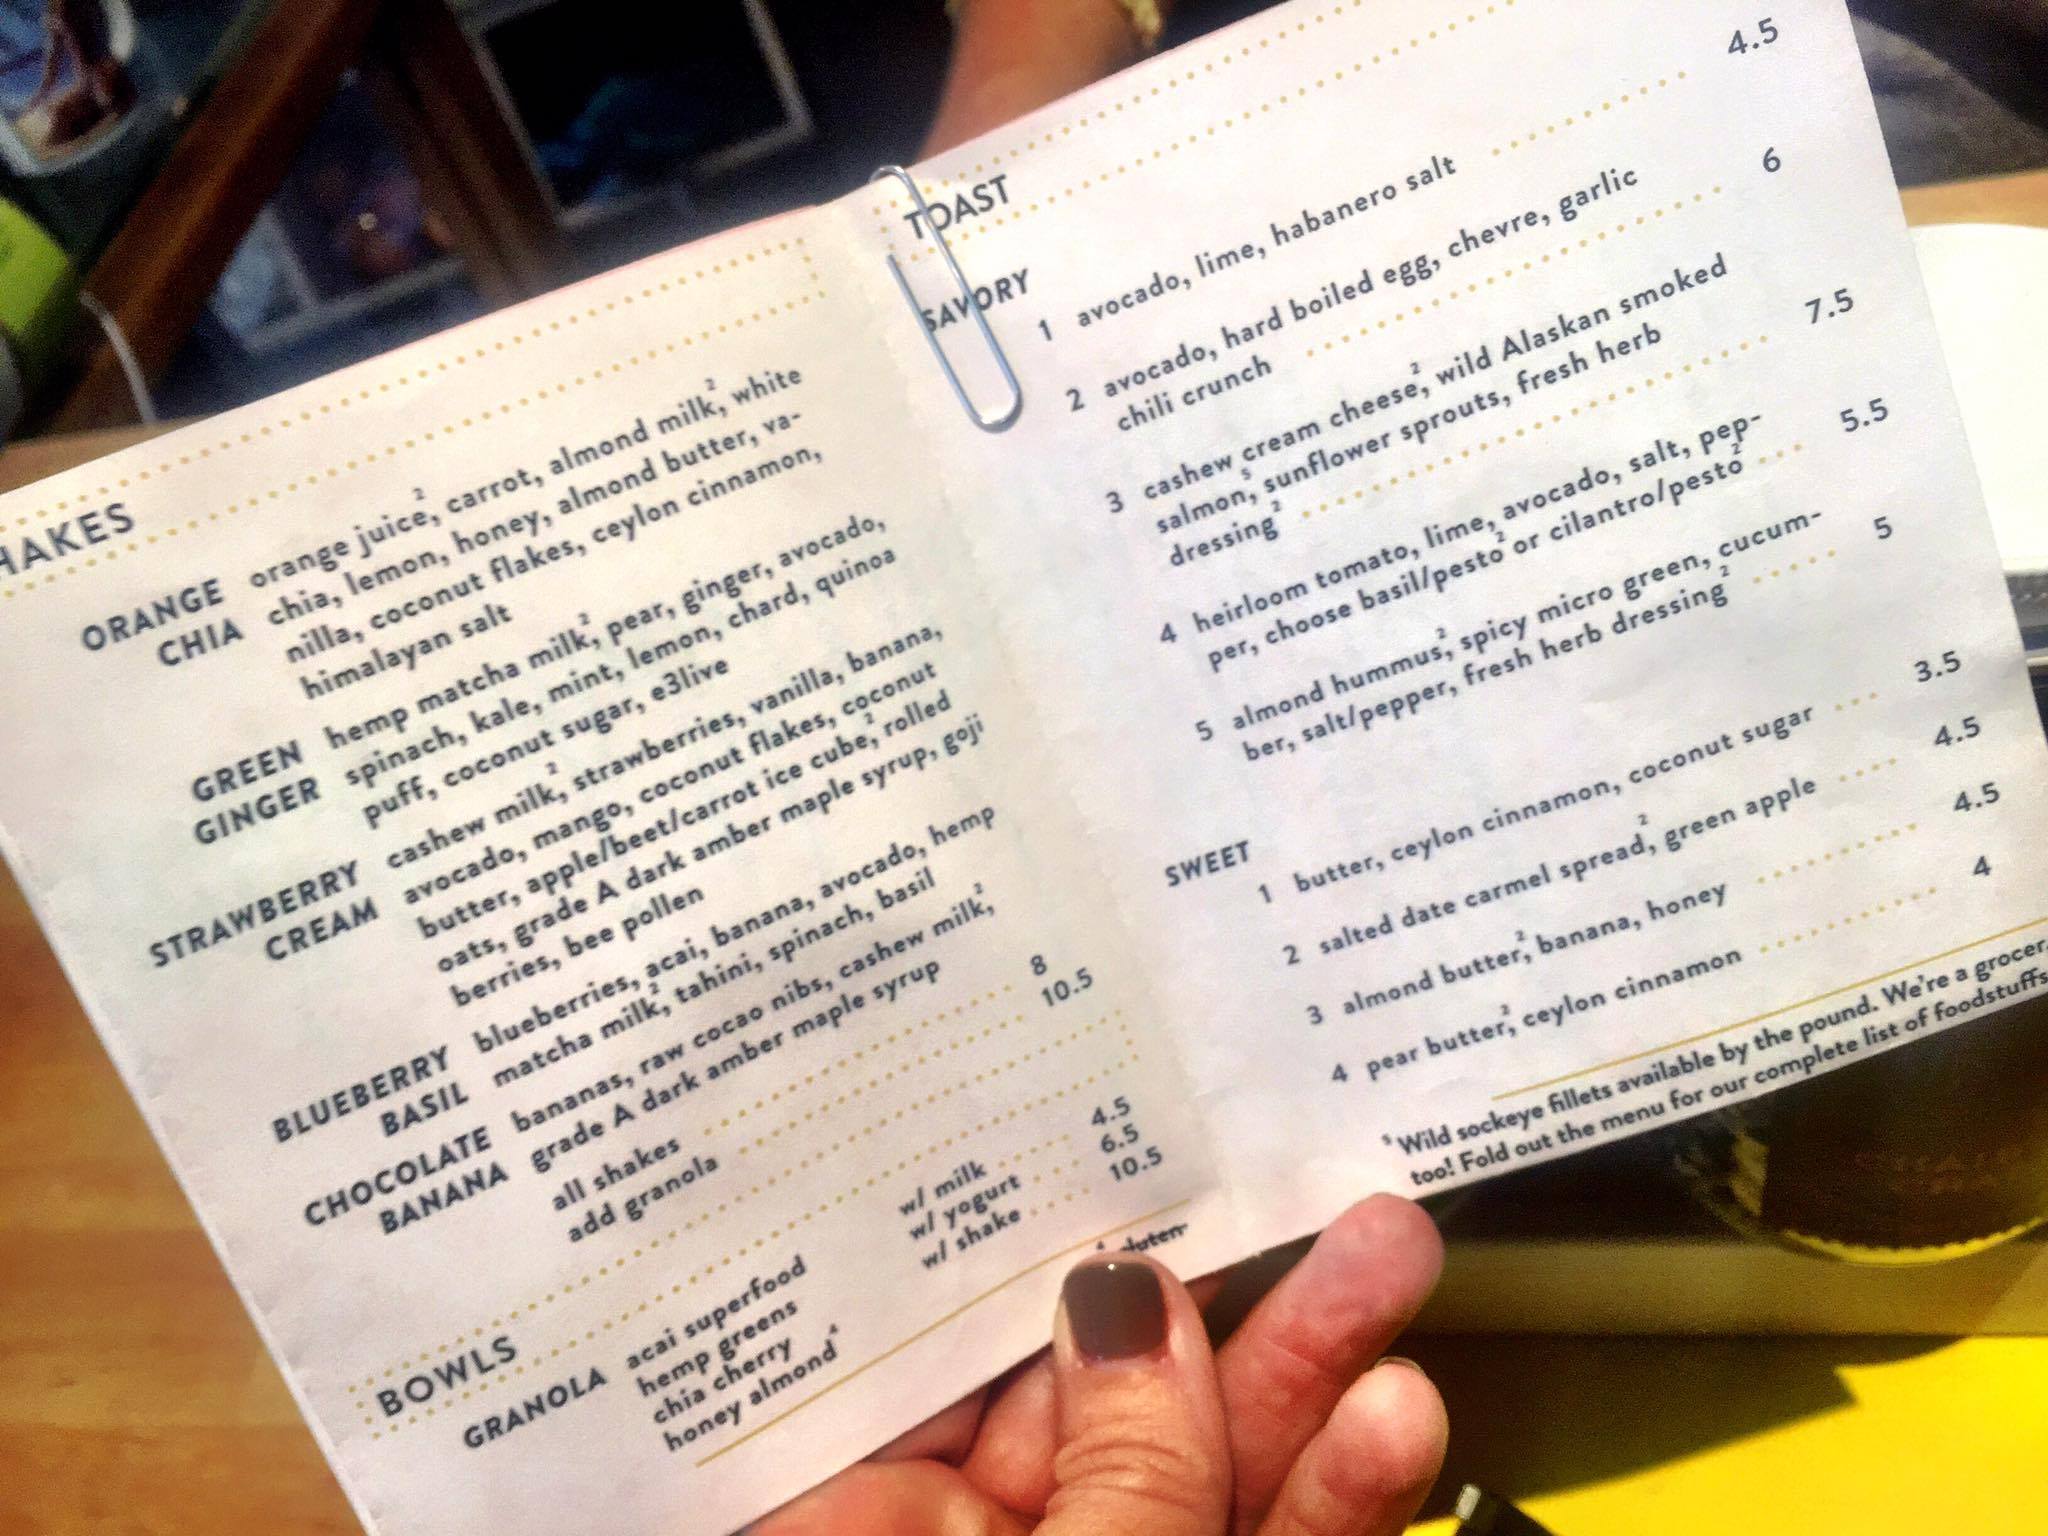 HAKES
ORANGE CHIA
orange juice,² carrot, almond milk,² white
chia, lemon, honey, almond butter, va-
nilla, coconut flakes, ceylon cinnamon,
himalayan salt
GREEN GINGER
hemp matcha milk,² pear, ginger, avocado,
spinach, kale, mint, lemon, chard, quinoa
puff, coconut sugar, e3live
STRAWBERRY CREAM
cashew milk,² strawberries, vanilla, banana,
avocado, mango, coconut flakes, coconut
butter, apple/beet/carrot ice cube,² rolled
oats, grade A dark amber maple syrup, goji
berries, bee pollen
BLUEBERRY BASIL
blueberries, acai, banana, avocado, hemp
matcha milk,² tahini, spinach, basil
CHOCOLATE BANANA
bananas, raw cocao nibs, cashew milk,²
grade A dark amber maple syrup
all shakes 8
add granola 10.5
BOWLS
GRANOLA
acai superfood
hemp greens
chia cherry
honey almond⁴
w/ milk 4.5
w/ yogurt 6.5
w/ shake 10.5
⁴ gluten-
TOAST
SAVORY
1 avocado, lime, habanero salt 4.5
2 avocado, hard boiled egg, chevre, garlic
chili crunch 6
3 cashew cream cheese,² wild Alaskan smoked
salmon,⁵ sunflower sprouts, fresh herb
dressing² 7.5
4 heirloom tomato, lime, avocado, salt, pep-
per, choose basil/pesto² or cilantro/pesto² 5.5
5 almond hummus,² spicy micro green, cucum-
ber, salt/pepper, fresh herb dressing² 5
SWEET
1 butter, ceylon cinnamon, coconut sugar 3.5
2 salted date carmel spread,² green apple 4.5
3 almond butter,² banana, honey 4.5
4 pear butter,² ceylon cinnamon 4
⁵ Wild sockeye fillets available by the pound. We're a grocer,
too! Fold out the menu for our complete list of foodstuffs